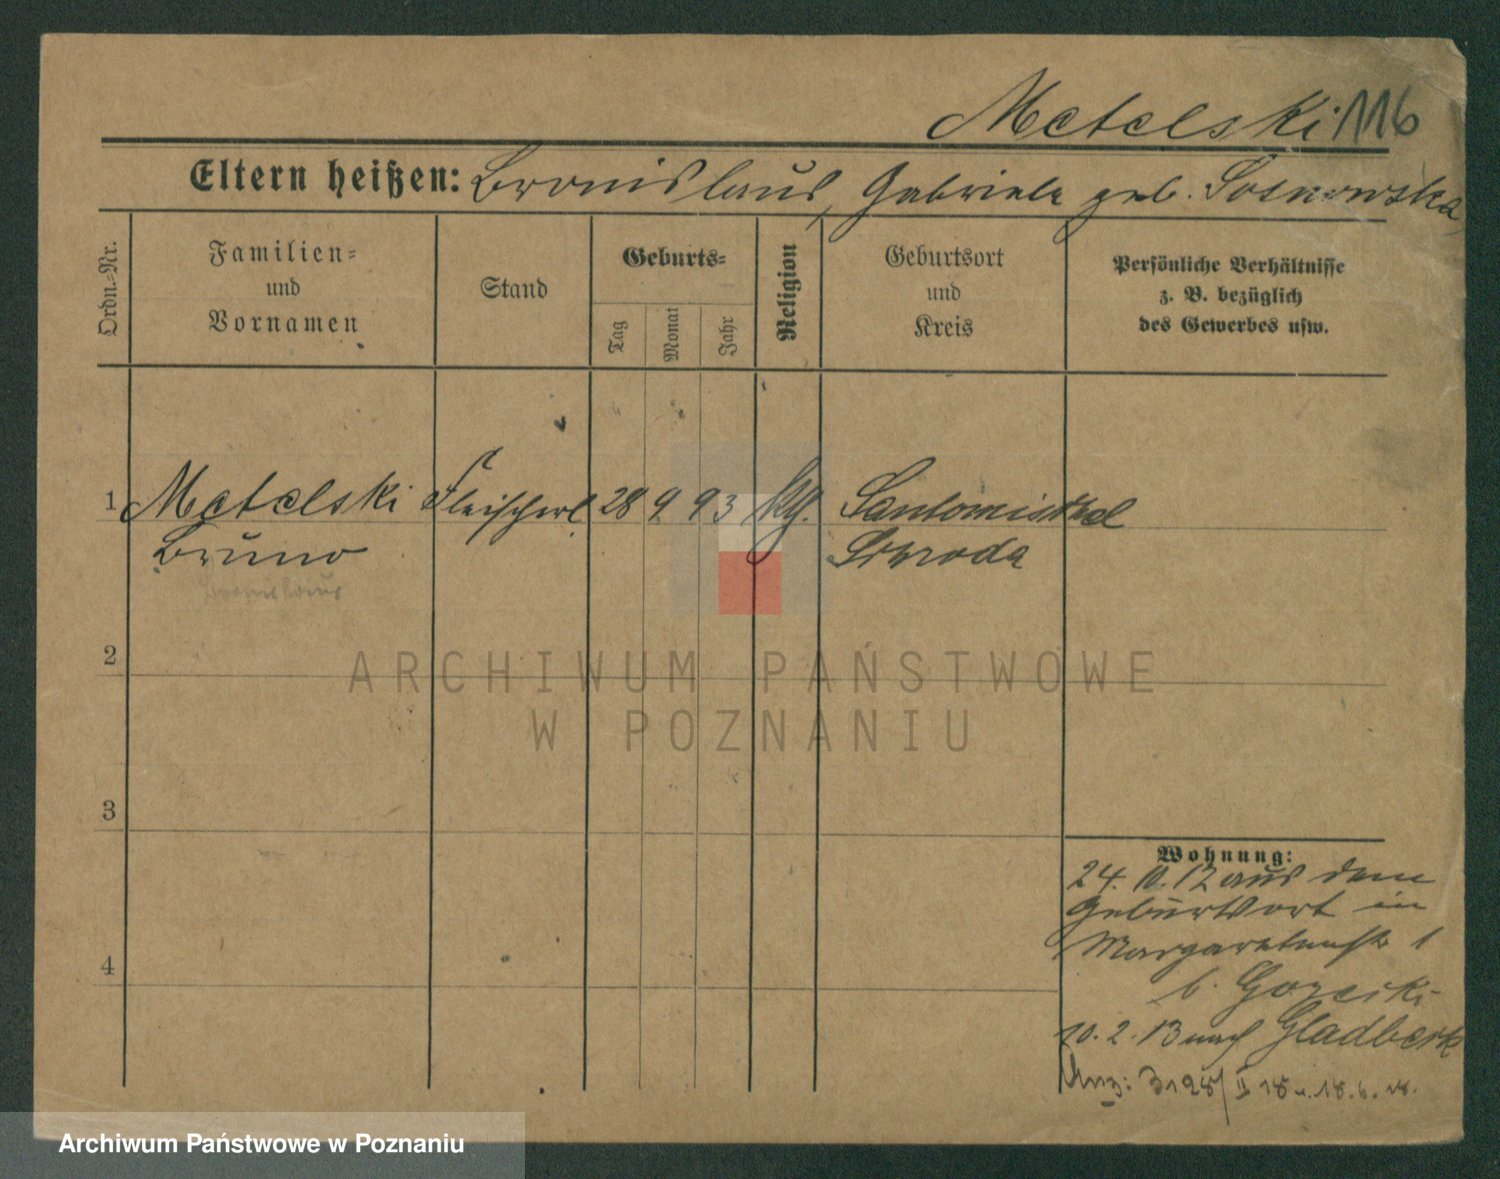 Metelski 116
Eltern heißen: Bronislaus, Gabriele geb. Sosnowska
Ordn.-Nr.
Familien-
und
Vornamen
Stand
Geburts-
Tag
Monat
Jahr
Religion
Geburtsort
und
Kreis
Persönliche Verhältnisse
z. B. bezüglich
des Gewerbes usw.
1 Metelski Fleischerl. 28 9 93 kth. Santomischel
Bruno Schroda
Bronislaus
2
ARCHIWUM PAŃSTWOWE
W POZNANIU
3
Wohnung:
24. 10. 12 aus dem
Geburtsort in
Margaretenstr 1
4
b. Gozeski
10. 2. 13 nach Gladbeck
Anz: 3198/II 18 v. 18.6.18.
Archiwum Państwowe w Poznaniu